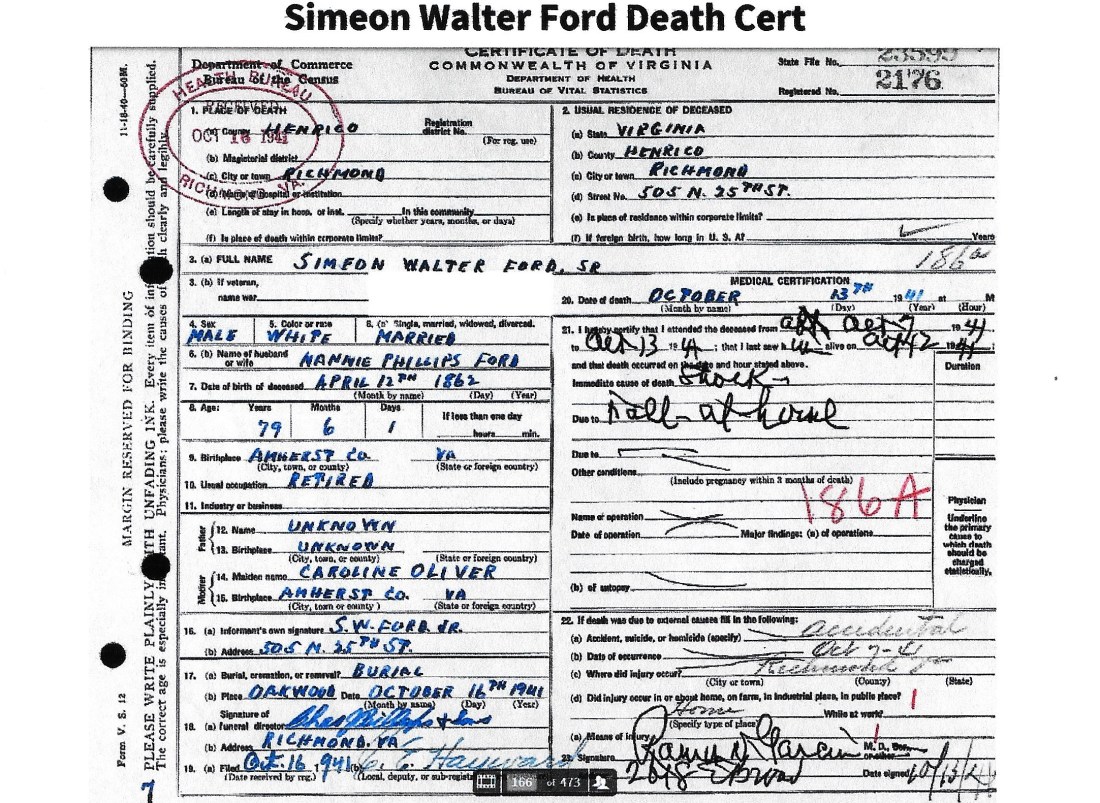 Simeon Walter Ford Death Cert
CERTIFICATE OF DEATH
Department of Commerce
Bureau of the Census
COMMONWEALTH OF VIRGINIA
DEPARTMENT OF HEALTH
BUREAU OF VITAL STATISTICS
State File No.
Registered No. 2176
HEALTH BUREAU
RECEIVED
OCT 16 1941
RICHMOND, VA.
11-18-40—50M.
MARGIN RESERVED FOR BINDING
Form V. S. 12
1. PLACE OF DEATH
(a) County HENRICO
Registration district No.
(For reg. use)
(b) Magisterial district
(c) City or town RICHMOND
(d) Name of hospital or institution
(e) Length of stay in hosp. or inst. In this community
(Specify whether years, months, or days)
(f) Is place of death within corporate limits?
2. USUAL RESIDENCE OF DECEASED
(a) State VIRGINIA
(b) County HENRICO
(c) City or town RICHMOND
(d) Street No. 505 N. 25TH ST.
(e) Is place of residence within corporate limits?
(f) If foreign birth, how long in U. S. A? Years
3. (a) FULL NAME SIMEON WALTER FORD, SR
186a
3. (b) If veteran,
name war
4. Sex 5. Color or race 6. (a) Single, married, widowed, divorced.
MALE WHITE MARRIED
6. (b) Name of husband
or wife NANNIE PHILLIPS FORD
7. Date of birth of deceased APRIL 12TH 1862
(Month by name) (Day) (Year)
8. Age: Years Months Days If less than one day
79 6 1 hours min.
9. Birthplace AMHERST CO. VA
(City, town, or county) (State or foreign country)
10. Usual occupation RETIRED
11. Industry or business
Father
12. Name UNKNOWN
13. Birthplace UNKNOWN
(City, town, or county) (State or foreign country)
Mother
14. Maiden name CAROLINE OLIVER
15. Birthplace AMHERST CO. VA
(City, town or county) (State or foreign country)
16. (a) Informent's own signature S.W. FORD JR.
(b) Address 505 N. 25TH ST.
17. (a) Burial, cremation, or removal? BURIAL
(b) Place OAKWOOD Date OCTOBER 16TH 1941
(Month by name) (Day) (Year)
Signature of
18. (a) funeral director
(b) Address RICHMOND, VA
19. (a) Filed Oct. 16 1941 (b) C. E. Hayward
(Date received by reg.) (Local, deputy, or sub-regist
MEDICAL CERTIFICATION
20. Date of death OCTOBER 13TH 1941 at M
(Month by name) (Day) (Year) (Hour)
21. I hereby certify that I attended the deceased from Oct 7 1941
to Oct 13 1941; that I last saw h im alive on Oct 12 1941;
and that death occurred on the date and hour stated above.
Duration
Immediate cause of death Shock
Due to Fall at home
Due to
Other conditions
(Include pregnancy within 3 months of death)
186A
Name of operation
Date of operation Major findings: (a) of operations
(b) of autopsy
Physician
Underline
the primary
cause to
which death
should be
charged
statistically.
22. If death was due to external causes fill in the following:
(a) Accident, suicide, or homicide (specify) accidental
(b) Date of occurrence Oct 7-41
(c) Where did injury occur? Richmond Va
(City or town) (County) (State)
(d) Did injury occur in or about home, on farm, in industrial place, in public place?
Home While at work?
(Specify type of place)
(e) Means of injury
23. Signature M. D.
or other
Date signed 10/13/41
166 of 473